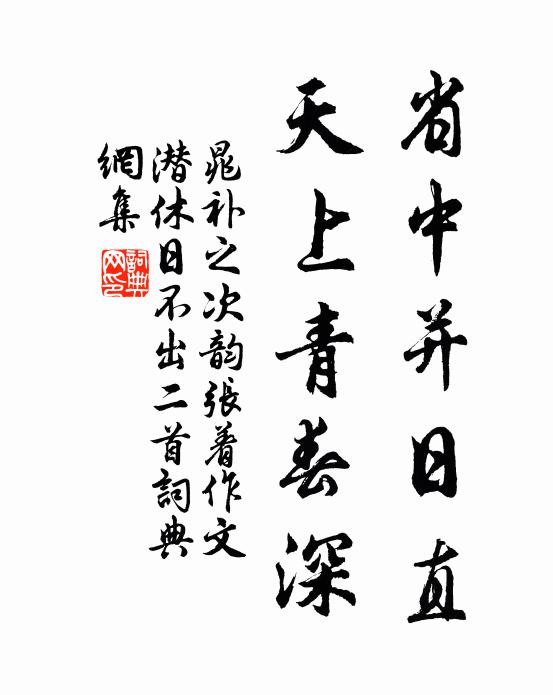 省中并日直
天上青春深
晁补之次韵張著作文
潜休日不出二首詞典
網集
詞典网印